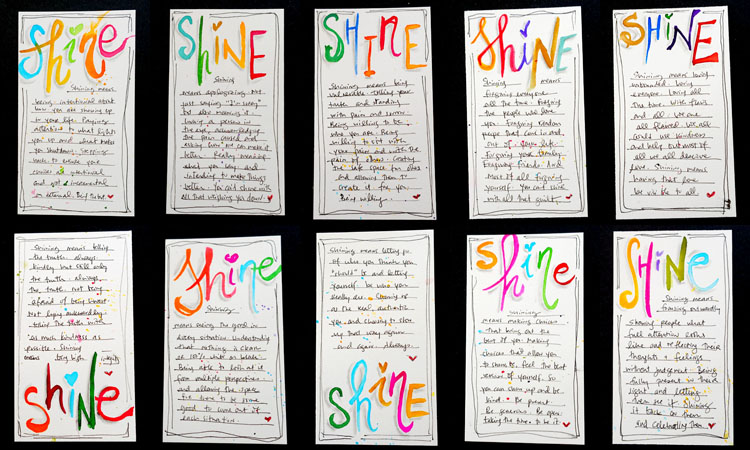 Shine
Shining means
being intentional about
how you are showing up
in your life. Paying
attention to what lights
you up and what makes
you shutdown.
choices
SHINE
Shining
means apologizing. Not
just saying "I'm sorry"
but also meaning it.
a person in
the eye, acknowledging
the pain caused and
asking how we can make it
better. Really meaning
what you say and
intending to make things
better. You can't shine with
all that weighing you down.
SHINE
Shining means being
vulnerable. Telling your
truth and standing
with pain and
Being willing to be
who you are. Being
willing to sit with
your pain and with the
pain of others. Creating
the safe space for others
and allowing them to
create it for you.
Being willing.
Shine
Shining means
forgiving everyone
all the time. Forgiving
the people who love
you. Forgiving random
people that come in and
out of your life.
Forgiving your family.
Forgiving friends. And
most of all forgiving
yourself. You can't shine
with all that guilt.
SHINE
Shining means loving
unbounded. Loving
everyone. Loving all
the time. With flaws
and all. We are
all flawed. We all
could use kindness
and help but most of
all we all deserve
love. Shining means
having that love
be visible to all.
Shining means telling
the truth always.
kindly but still only
the truth always.
the truth. Not being
afraid of being honest.
Not being awkward by
telling the truth with
as much kindness as
possible. Shining
means being high integrity
shine
shine
Shining
means seeing the good in
every situation. Understanding
that nothing is
100% white or black.
Being able to look at it
from multiple perspectives
and allowing the space
for there to be some
good to come out of
each situation.
Shining means letting go
of who you think you
"should" be and letting
yourself be who you
really are. Coming out
as the real, authentic
you and choosing to show
up that way again
and again. Always.
shine
shine
Shining
means making choices
that bring out the
best if you. Making
choices that allow you
to shine the best
version of yourself. So
you can show up and be
kind. Be present.
Be generous. Be open.
taking the time to be it
SHINE
Shining means
showing people what
full attention looks
like and reflecting their
thoughts & feelings
without judgement. Being
fully present in their
light and letting
them see it. Shining
it back on them
and celebrating them.